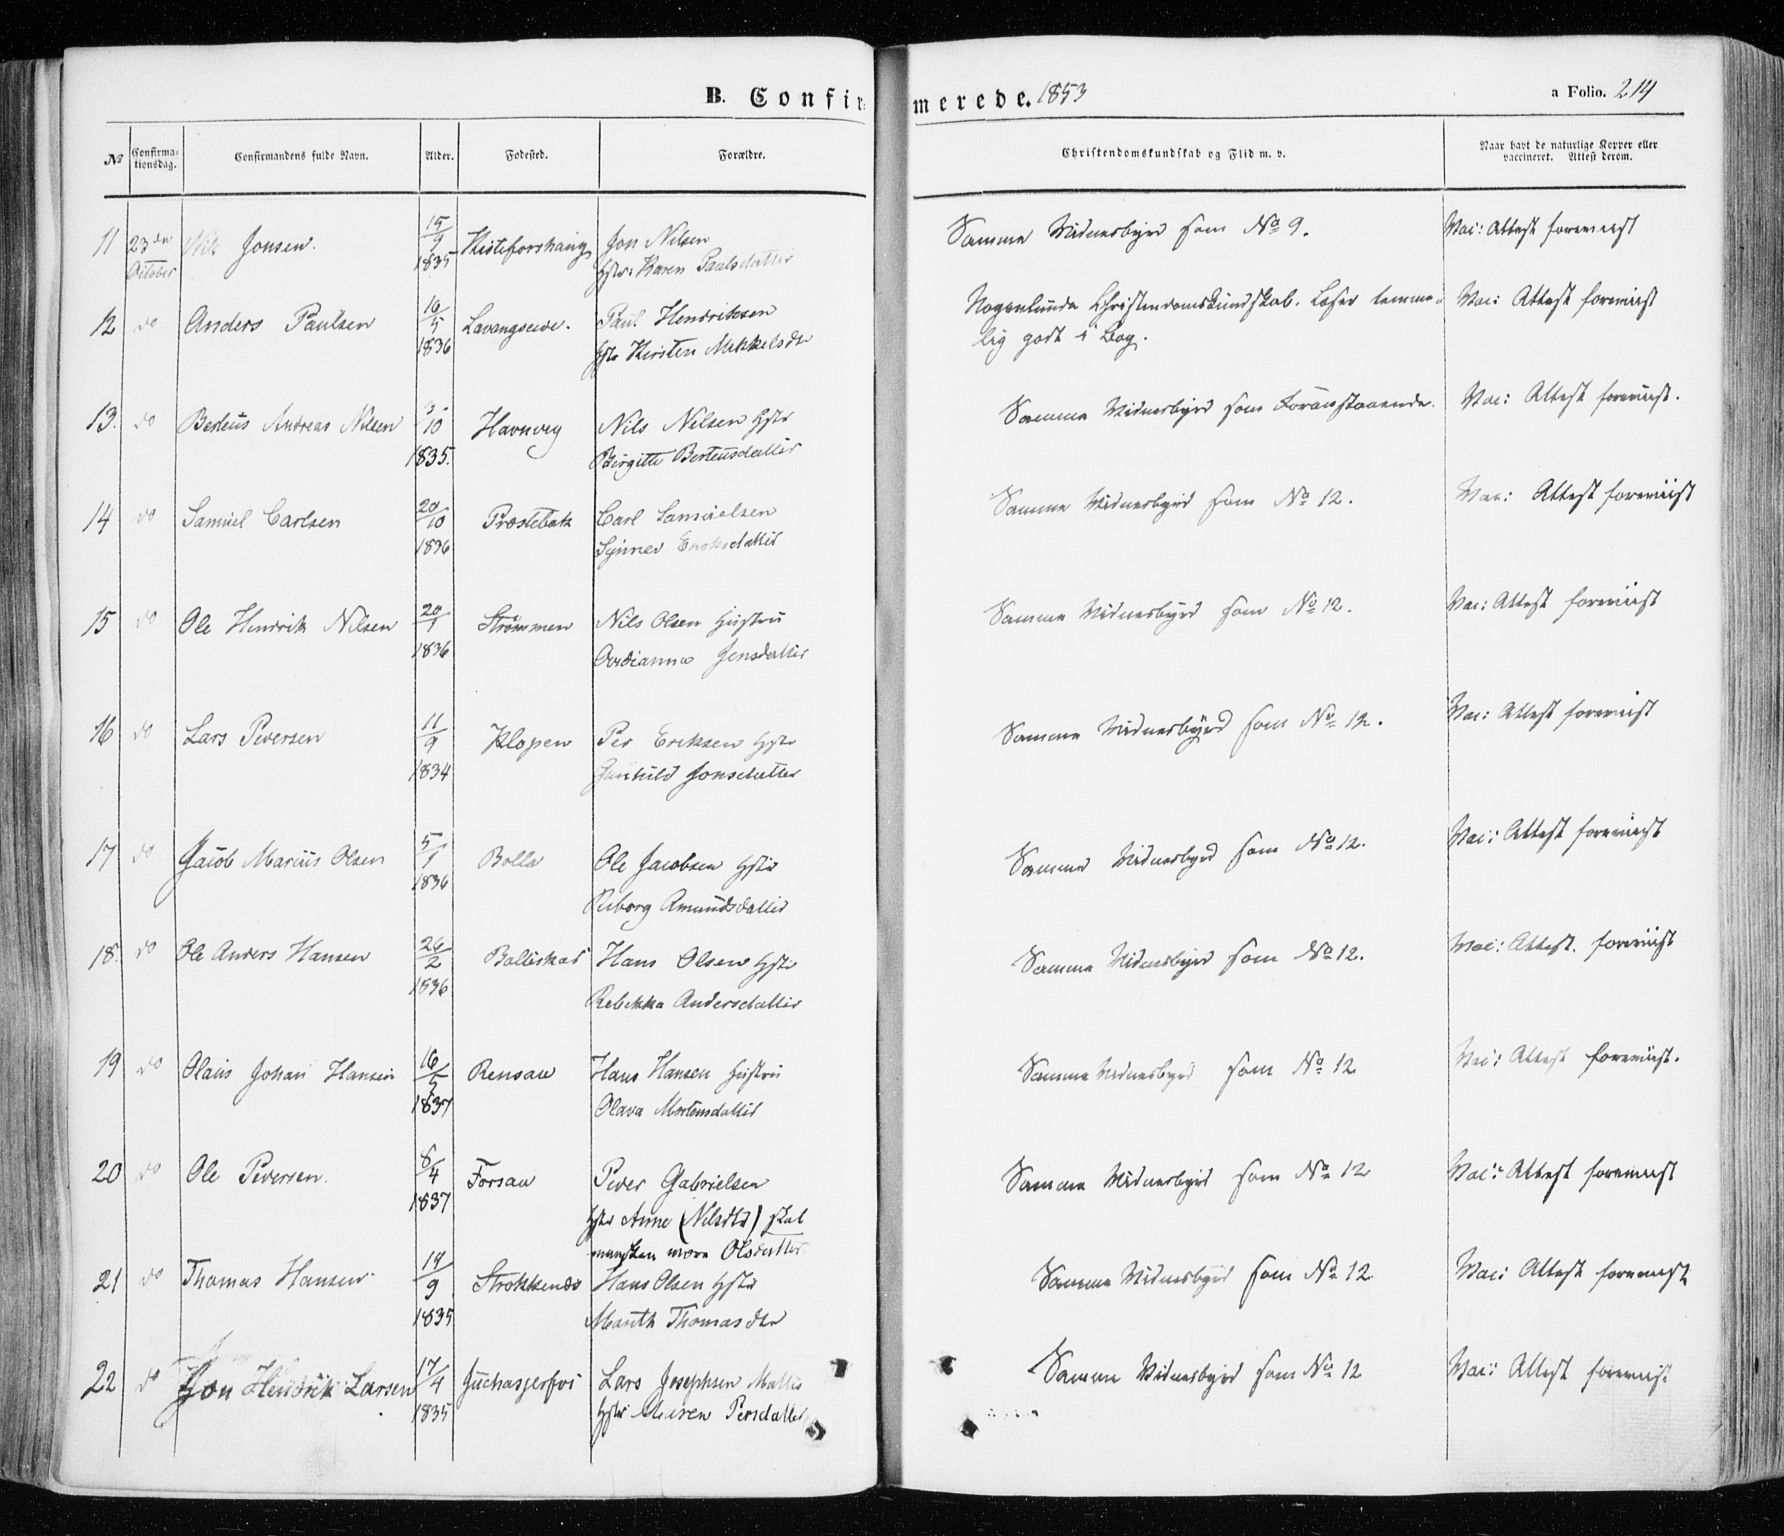 B. Confirmerede. 1853
a Folio. 214
№ Confirmationsdag. Confirmandens fulde Navn. Alder. Fødested. Forældre. Christendomskundskab og Flid m. v. Naar havt de naturlige Kopper eller vaccineret. Attest derom.
11 23de October Nils Jonsen. 15/9 1835 Jon Nilsen Samme Vidnesbyrd som No 9. Vac: Attest foreviist
Hstr: Karen Paulsdatter
12 do Anders Paulsen 16/5 1836 Lavangseide. Paul Hendriksen Nogenlunde Christendomskundskab. Læser temme- Vac: Attest foreviist
Hstr Kirsten Mikkelsdtr lig godt i Bog.
13. do Berteus Andreas Nilsen 3/10 1835. Havnveg Nils Nilsen Hstr Samme Vidnesbyrd som Foranstaaende. Vac: Attest foreviist.
Birgitte Berteusdatter
14 do Samuel Carlsen 20/10 1836 Præstebak Carl Samuelsen Samme Vidnesbyrd som No 12. Vac: Attest foreviist
Synnev Enoksdatter
15 do Ole Hendrik Nilsen 20/1 1836 Strømmen Nils Olsen Hustru Samme Vidnesbyrd som No 12. Vac: Attest foreviist
Jensdatter
16 do Lars Pedersen 11/9 1834 Klopen Per Eriksen Hstr Samme Vidnesbyrd som No 12. Vac: Attest foreviist
Gunhild Jonsdatter
17 do Jacob Marius Olsen 5/1 1836 Bolla Ole Jacobsen Hstr Samme Vidnesbyrd som No 12. Vac: Attest foreviist
Riborg Amundsdatter
18. do Ole Anders Hansen 26/2 1836 Hans Olsen Hstr Samme Vidnesbyrd som No 12. Vac: Attest. foreviist
Rebekka Andersdatter
19 do Olaus Johan Hansen 16/5 1837 Rensaa Hans Hansen Hustru Samme Vidnesbyrd som No 12 Vac: Attest foreviist.
Olava Mortensdatter
20 do Ole Pedersen. 8/4 1837 Forsaa Peder Gabrielsen Samme Vidnesbyrd som No 12 Vac: Attest foreviist
Hstr Anne (Nilsdtr) skal
maaskee være Olsdatter
21 do Thomas Hansen 14/9 1835 Strokkenæs Hans Olsen Hstr Samme Vidnesbyrd som No 12. Vac: Attest foreviist
Marith Thomasdtr
22 do Jon Hendrik Larsen 17/4 1835 Lars Josephsen Samme Vidnesbyrd som No 12 Vac: Attest foreviist
Hstr Maren Persdatter